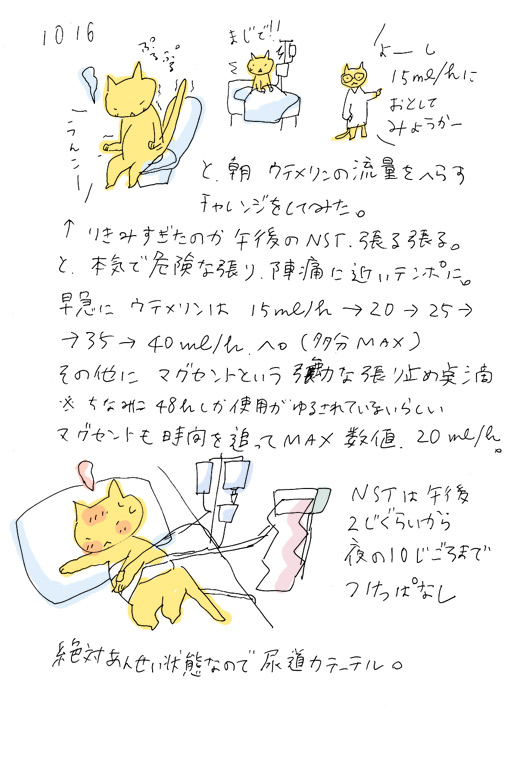 1016
ぷるぷる
うんこー
まじで!!
よーし
15ml/hに
おとして
みようかー
と、朝 ウテメリンの流量をへらす
チャレンジをしてみた。
↑ りきみすぎたのか 午後のNST、張る張る。
と、本気で危険な張り、陣痛に近いテンポに。
早急に ウテメリンは 15ml/h → 20 → 25 →
→ 35 → 40ml/h へ。(多分MAX)
その他に マグセントという 強力な張り止め点滴
※ ちなみに 48hしか使用がゆるされていないらしい
マグセントも時間を追ってMAX数値、20ml/h。
NSTは午後
2じぐらいから
夜の10じごろまで
つけっぱなし
絶対あんせい状態なので 尿道カテーテル。